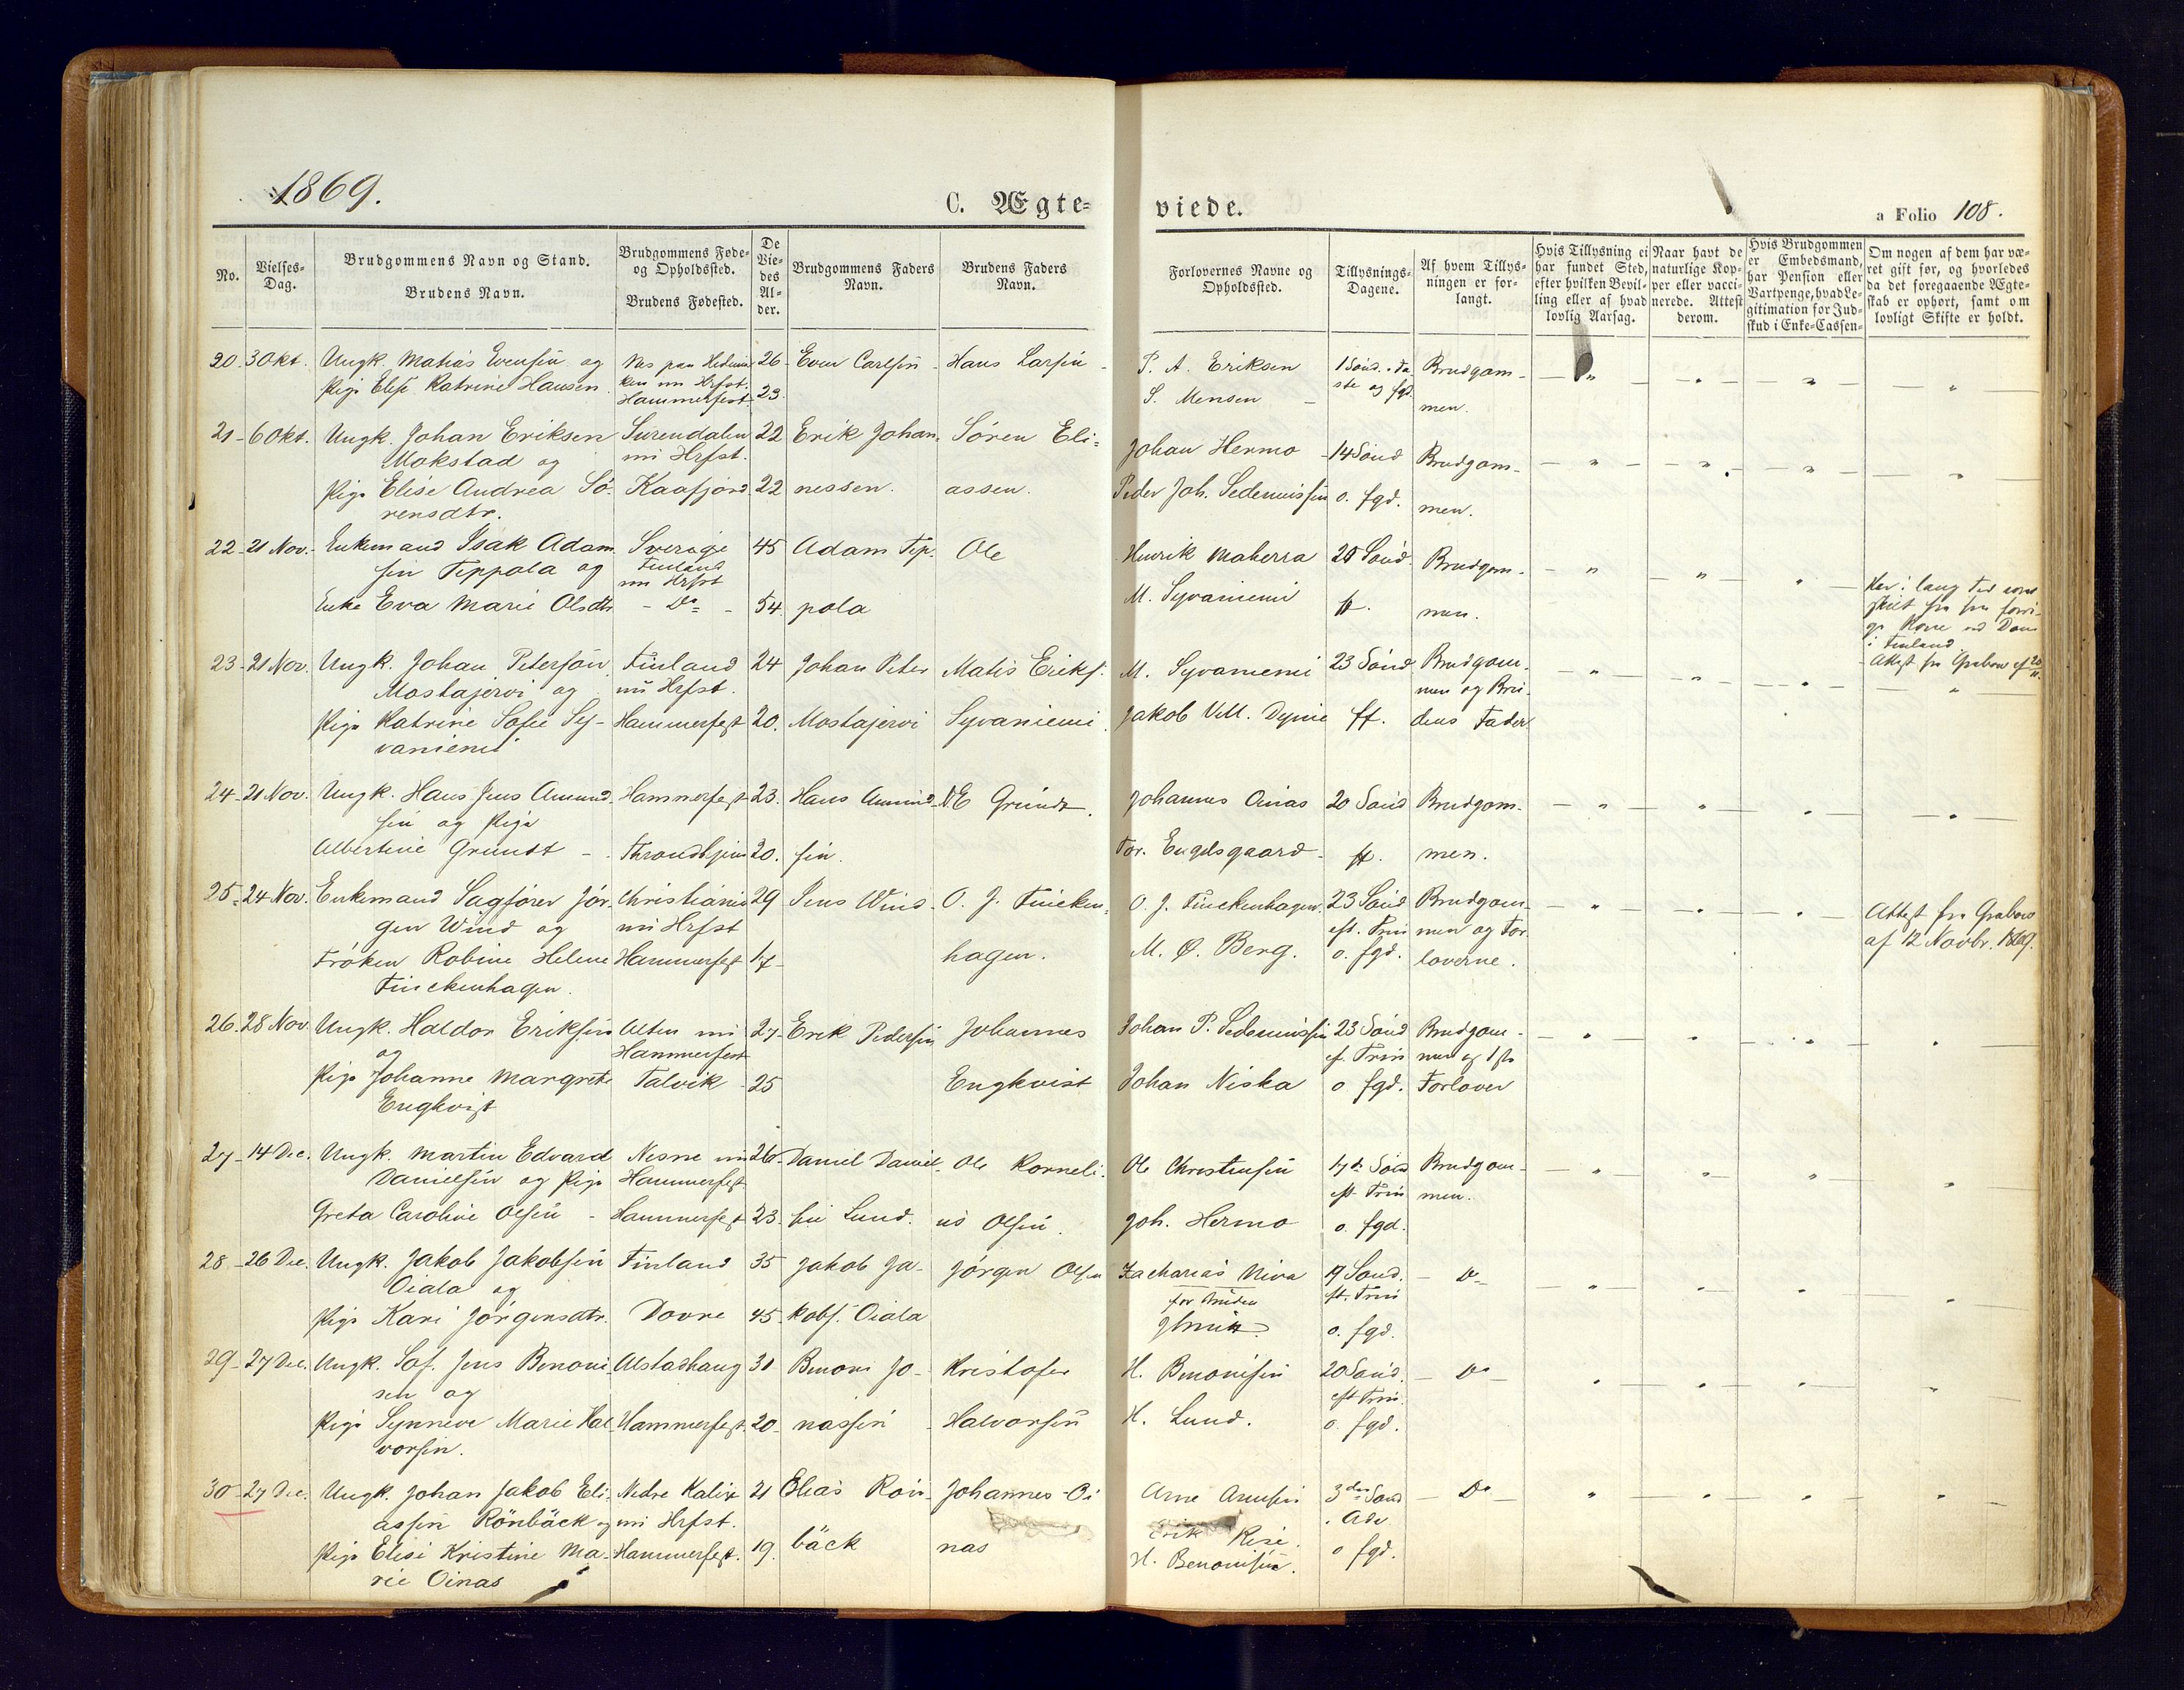 1869.
C. Ægte-
viede.
a Folio 108.
No.
Vielses-
Dag.
Brudgommens Navn og Stand.
Brudens Navn.
Brudgommens Føde-
og Opholdssted.
Brudens Fødested.
De
Vie-
des
Al-
der.
Brudgommens Faders
Navn.
Brudens Faders
Navn.
Forlovernes Navne og
Opholdssted.
Tillysnings-
Dagene.
Af hvem Tillys-
ningen er for-
langt.
Hvis Tillysning ei
har fundet Sted,
efter hvilken Bevil-
ling eller af hvad
lovlig Aarsag.
Naar havt de
naturlige Kop-
per eller vacci-
nerede. Attest
derom.
Hvis Brudgommen
er Embedsmand,
har Pension eller
Vartpenge, hvad Le-
gitimation for Ind-
skud i Enke-Cassen-
Om nogen af dem har væ-
ret gift før, og hvorledes
da det foregaaende Ægte-
skab er ophørt, samt om
lovligt Skifte er holdt.
20 3 Okt. Ungk. Matias Evensen og
Pige Elise Katrine Hansen
Nes paa Hedemar
ken nu Hrfst.
Hammerfest
26
23
Even Carlsen
Hans Larsen
P. A. Eriksen
S. Mensen
1 Sønd.
og fgd.
Brudgom-
men.
21 6 Okt. Ungk. Johan Eriksen
Mokstad og
Pige Elise Andrea Sø-
rensdtr.
Surendalen
nu Hrfst.
Kaafjord
22
22
Erik Johan-
nessen.
Søren Eli-
assen.
Johan Hermo
Peder Joh. Sedeniussen
14 Sønd
o. fgd.
Brudgom-
men.
22 21 Nov. Enkemand Isak Adam
sen Teppola og
Enke Eva Marie Olsdtr
Sverige
Finland
nu Hrfst
- Do -
45
54
Adam Tep-
pola
Ole
Henrik Maherra
M. Syvaniemi
20 Sønd
ff.
Brudgom-
men.
Har i lang Tid
skilt fra
Kone ved Dom
i Finland
Attest fra Grabow
23 21 Nov. Ungk. Johan Petersøn
Mostajervi og
Pige Katrine Sofie Sy-
vaniemi
Finland
nu Hrfst.
Hammerfest
24
20.
Johan Peter
Mostajervi
Matis Eriks.
Syvaniemi
M. Syvaniemi
Jakob
23 Sønd
ff.
Brudgom-
men og Bru-
dens Fader
24 21 Nov. Ungk. Hans Jens Amund-
sen og Pige
Albertine Grundt
Hammerfest
Throndhjem
23.
20.
Hans Amund-
sen.
N E Grundt.
Johannes Oinas
Tor. Engelsgaard
20 Sønd
ff.
Brudgom-
men.
25 24 Nov. Enkemand Sagfører Jør-
gen Wind og
Frøken Robine Helene
Finckenhagen.
Christiania
nu Hrfst
Hammerfest
29
17
Jens Wind.
O. J. Fincken-
hagen.
O. J. Finckenhagen.
M. Ø. Berg.
23 Sønd
eft. Trin
o. fgd.
Brudgom-
men og For-
loverne.
Attest fra Grabow
af 12 Novbr. 1869.
26. 28 Nov. Ungk. Haldor Eriksen
og
Pige Johanne Margrete
Engkvist
Alten nu
Hammerfest
Talvik
27
25
Erik Pedersen
Johannes
Engkvist
Johan P. Sedeniussen
Johan Niska
23 Sønd
ef. Trin
o fgd.
Brudgom-
men og 1ste
Forlover
27 14 Dec. Ungk. Martin Edvard
Danielsen og Pige
Greta Caroline Olsen
Nesne nu
Hammerfest
Hammerfest
26
23.
Daniel Daniel-
sen Lund.
Ole Korneli-
us Olsen.
Ole Christensen
Joh. Hermo
17de Sønd
eft. Trin
o. fgd.
Brudgom-
men.
28 26 Dec. Ungk. Jakob Jakobsen
Oiala og
Pige Kari Jørgensdtr.
Finland
Dovre
35
45
Jakob Ja-
kobs. Oiala
Jørgen Olsen
Zacharias Niva
for Bruden
19 Sønd.
eft. Trin
o. fgd.
- Do
29 27 Dec. Ungk. Sof. Jens Benoni-
sen og
Pige Synneve Marie Hal
vorsen.
Alstadhaug
Hammerfest.
31
20
Benoni Jo-
nassen
Kristofer
Halvorsen
H. Benonisen
H. Lund.
20 Sønd.
eft Trin.
o. fgd.
- Do -
30 27 Dec. Ungk. Johan Jakob Eli-
assen Rönbäck og
Pige Elise Kristine Ma-
rie Oinas
Nedre Kalix
nu Hrfst.
Hammerfest.
21
19.
Elias Rön-
bäck
Johannes Oi
nas
Arne Arnesen
Erik Rise.
H. Benonisen.
3die Sønd
i Adv
o fgd.
- Do -